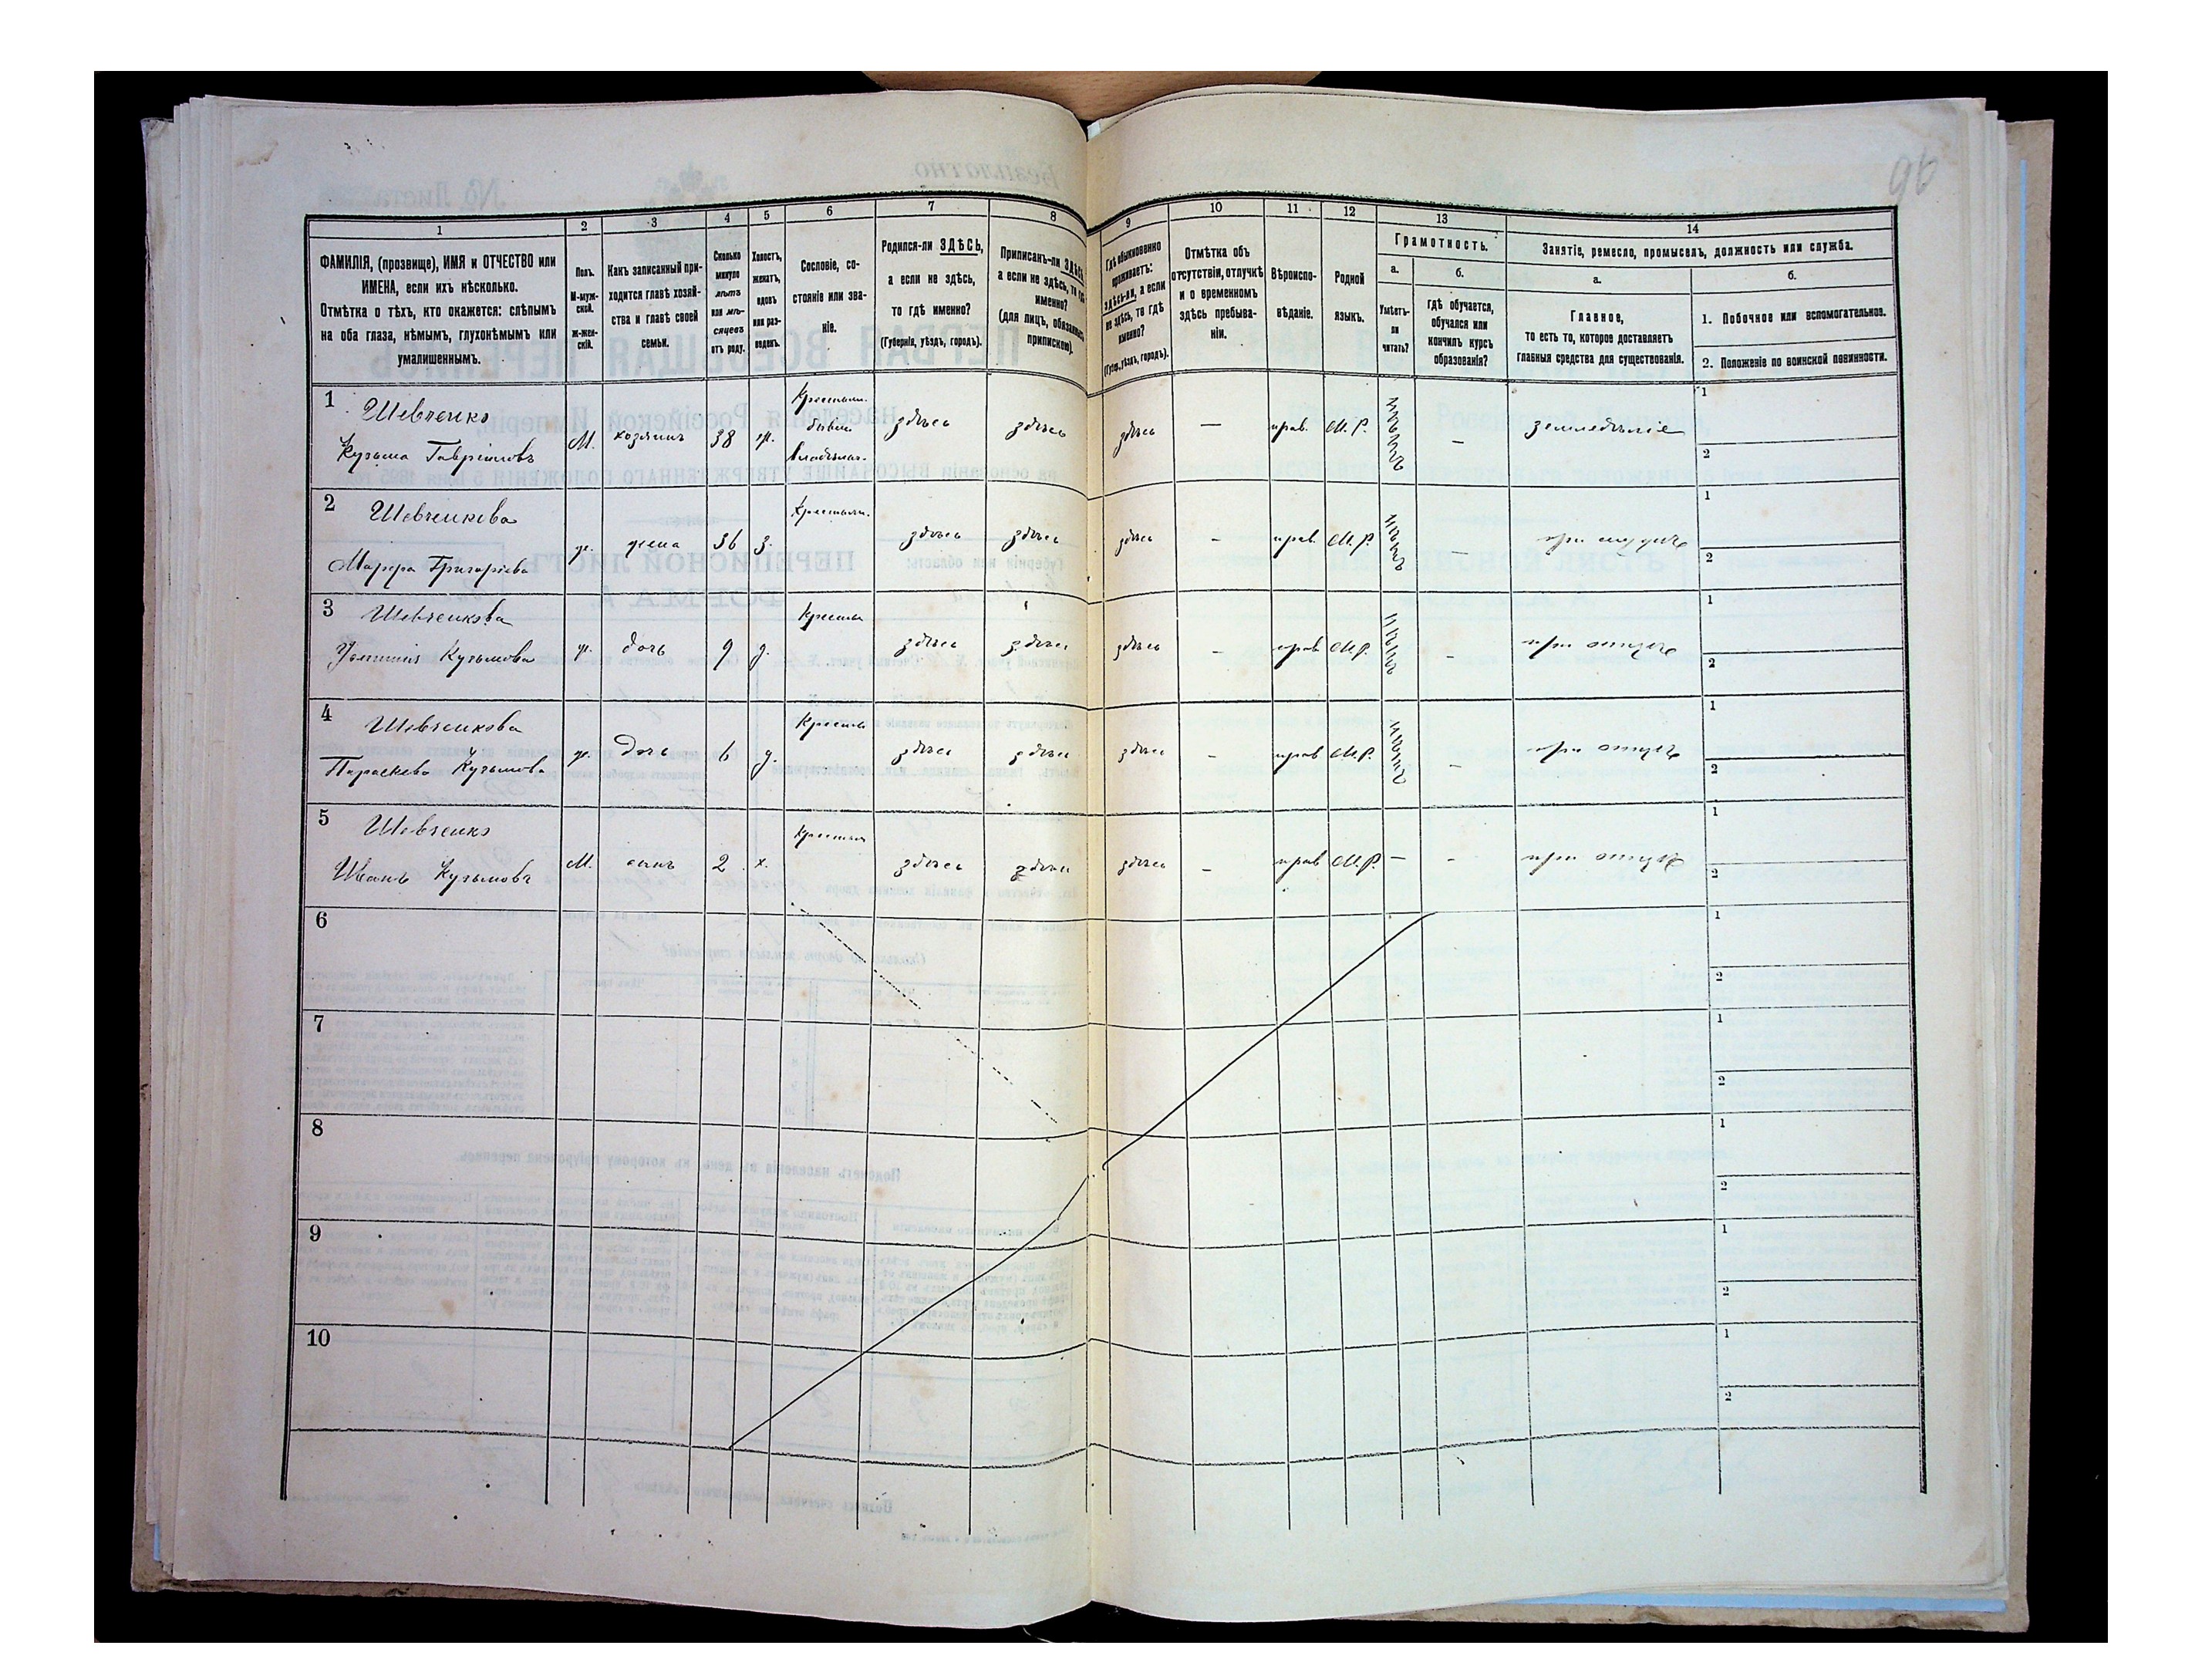 96
1 2 3 4 5 6 7 8 9 10 11 12 13 14
ФАМИЛІЯ, (прозвище), ИМЯ и ОТЧЕСТВО или
ИМЕНА, если ихъ нѣсколько.
Отмѣтка о тѣхъ, кто окажется: слѣпымъ
на оба глаза, нѣмымъ, глухонѣмымъ или
умалишеннымъ.
Полъ.
М-муж-
ской.
ж-жен-
скій.
Какъ записанный при-
ходится главѣ хозяй-
ства и главѣ своей
семьи.
Сколько
минуло
лѣтъ
или мѣ-
сяцевъ
отъ роду.
Холостъ,
женатъ,
вдовъ
или раз-
веденъ.
Сословіе, со-
стояніе или зва-
ніе.
Родился-ли ЗДѢСЬ,
а если не здѣсь,
то гдѣ именно?
(Губернія, уѣздъ, городъ).
Приписанъ-ли ЗДѢСЬ,
а если не здѣсь, то гдѣ
именно?
(для лицъ, обязанныхъ
припискою).
Гдѣ обыкновенно
проживаетъ:
здѣсь-ли, а если
не здѣсь, то гдѣ
именно?
(Губер., уѣздъ, городъ).
Отмѣтка объ
отсутствіи, отлучкѣ
и о временномъ
здѣсь пребыва-
ніи.
Вѣроиспо-
вѣданіе.
Родной
языкъ.
Грамотность.
а.
Умѣетъ-
ли
читать?
б.
Гдѣ обучается,
обучался или
кончилъ курсъ
образованія?
Занятіе, ремесло, промыселъ, должность или служба.
а.
Главное,
то есть то, которое доставляетъ
главныя средства для существованія.
б.
1. Побочное или вспомогательное.
2. Положеніе по воинской повинности.
1 Шевченко
Кузьма Гавріиловъ
М. хозяинъ 38 ж. Крестьян. бывш. владѣльч. здѣсь здѣсь здѣсь — прав. М.Р. — земледѣліе 1 2
2 Шевченкова
Марѳа Григорьева
ж. жена 36 з. Крестьян. здѣсь здѣсь здѣсь - прав. М.Р. — при мужѣ 1 2
3 Шевченкова
Кузьмова
ж. дочь 9 д. здѣсь здѣсь здѣсь - прав М.Р. - при отцѣ 1 2
4 Шевченкова
Параскева Кузьмова
ж. дочь 6 д. здѣсь здѣсь здѣсь - прав М.Р. - при отцѣ 1 2
5 Шевченко
Иванъ Кузьмовъ
М. сынъ 2 х. здѣсь здѣсь здѣсь - прав М.Р. — - при отцѣ 1 2
6 1 2
7 1 2
8 1 2
9 1 2
10 1 2